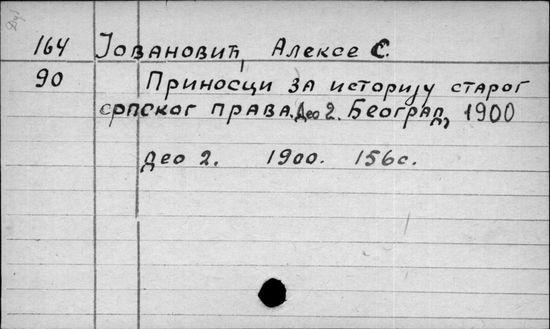 164 Јовановић, Алексе С.
90 Приносци за историју старог
српског права. Део 2. Београд, 1900
део 2. 1900. 156с.